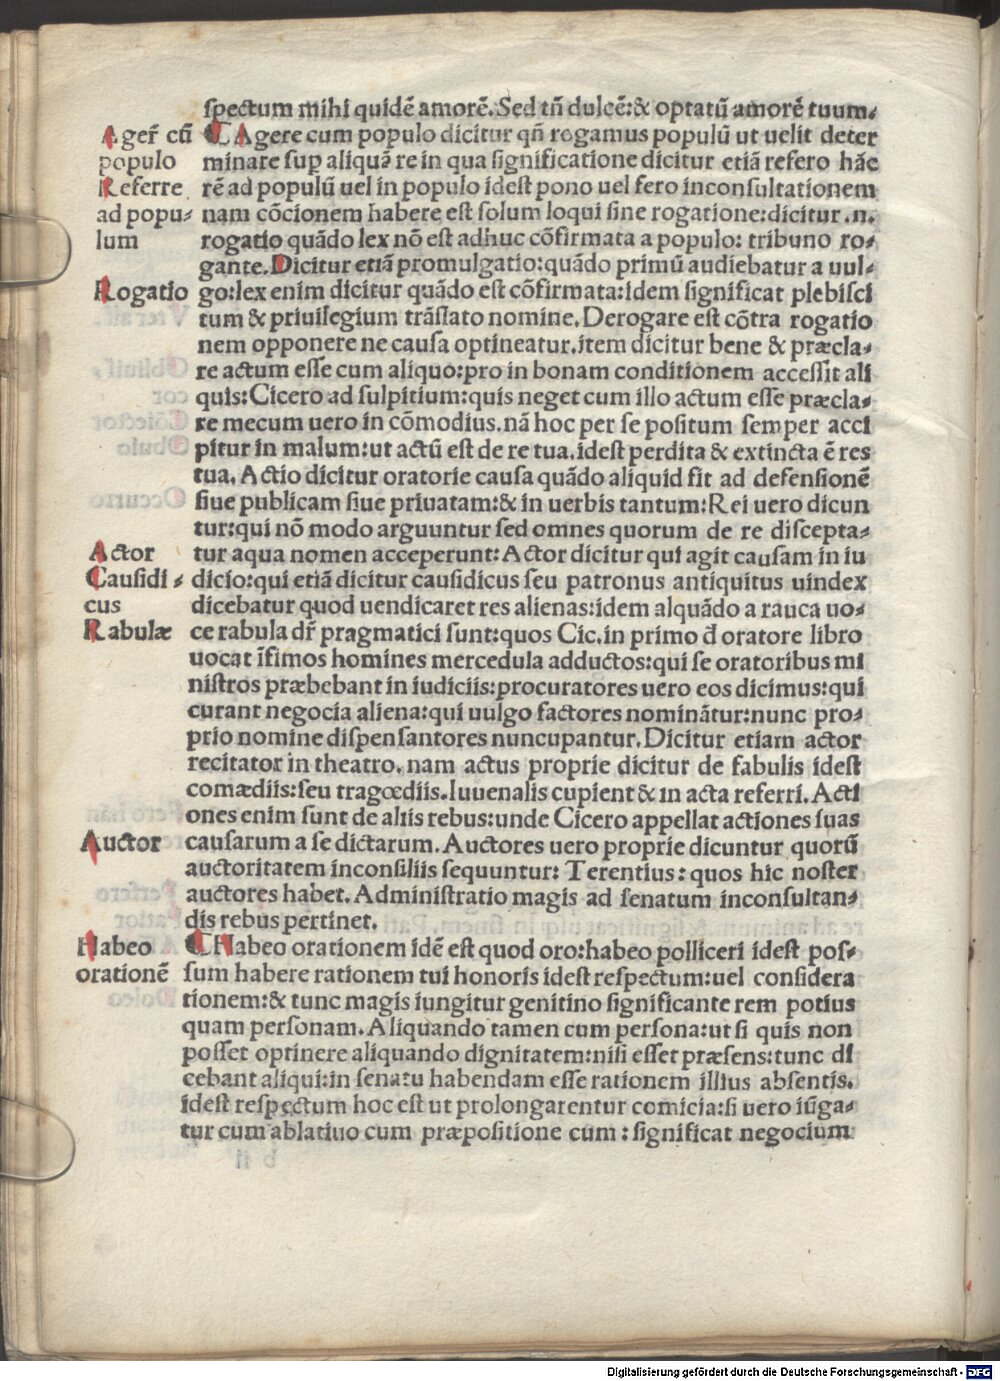 spectum mihi quidē amorē. Sed tñ dulcē:& optatū amorē tuum.
Ageř cū
populo
Referre
ad popu-
lum
¶ Agere cum populo dicitur qñ rogamus populū ut uelit deter
minare sup aliquā re in qua significatione dicitur etiā refero hāc
rē ad populū uel in populo idest pono uel fero inconsultationem
nam cōcionem habere est solum loqui sine rogatione:dicitur .n.
rogatio quādo lex nō est adhuc cōfirmata a populo: tribuno ro-
gante. Dicitur etiā promulgatio:quādo primū audiebatur a uul-
Rogatio
go:lex enim dicitur quādo est cōfirmata:idem significat plebisci
tum & priuilegium trāslato nomine. Derogare est cōtra rogatio
nem opponere ne causa optineatur.item dicitur bene & præcla-
re actum esse cum aliquo:pro in bonam conditionem accessit ali
quis:Cicero ad sulpitium:quis neget cum illo actum esse præcla-
re mecum uero in cōmodius.nā hoc per se positum semper acci
pitur in malum:ut actū est de re tua.idest perdita & extincta ē res
tua. Actio dicitur oratorie causa quādo aliquid fit ad defensionē
siue publicam siue priuatam:& in uerbis tantum:Rei uero dicun
tur:qui nō modo arguuntur sed omnes quorum de re discepta-
Actor
Causidi-
cus
Rabulæ
tur aqua nomen acceperunt: Actor dicitur qui agit causam in iu
dicio:qui etiā dicitur causidicus seu patronus antiquitus uindex
dicebatur quod uendicaret res alienas:idem alquādo a rauca uo-
ce rabula dř pragmatici sunt:quos Cic.in primo đ oratore libro
uocat īfimos homines mercedula adductos:qui se oratoribus mi
nistros præbebant in iudiciis:procuratores uero eos dicimus:qui
curant negocia aliena:qui uulgo factores nominātur:nunc pro-
prio nomine dispensantores nuncupantur. Dicitur etiam actor
recitator in theatro. nam actus proprie dicitur de fabulis idest
comædiis:seu tragœdiis. Iuuenalis cupient & in acta referri. Acti
ones enim sunt de aliis rebus:unde Cicero appellat actiones suas
Auctor
causarum a se dictarum. Auctores uero proprie dicuntur quorū
auctoritatem inconsiliis sequuntur: Terentius: quos hic noster
auctores habet. Administratio magis ad senatum inconsultan-
dis rebus pertinet.
Habeo
orationē
¶ Habeo orationem idē est quod oro:habeo polliceri idest pos-
sum habere rationem tui honoris idest respectum:uel considera
tionem:& tunc magis iungitur genitino significante rem potius
quam personam. Aliquando tamen cum persona:ut si quis non
posset optinere aliquando dignitatem:nisi esset præsens:tunc di
cebant aliqui:in senatu habendam esse rationem illius absentis.
idest respectum hoc est ut prolongarentur comicia:si uero iūga-
tur cum ablatiuo cum præpositione cum : significat negocium
Digitalisierung gefördert durch die Deutsche Forschungsgemeinschaft - DFG